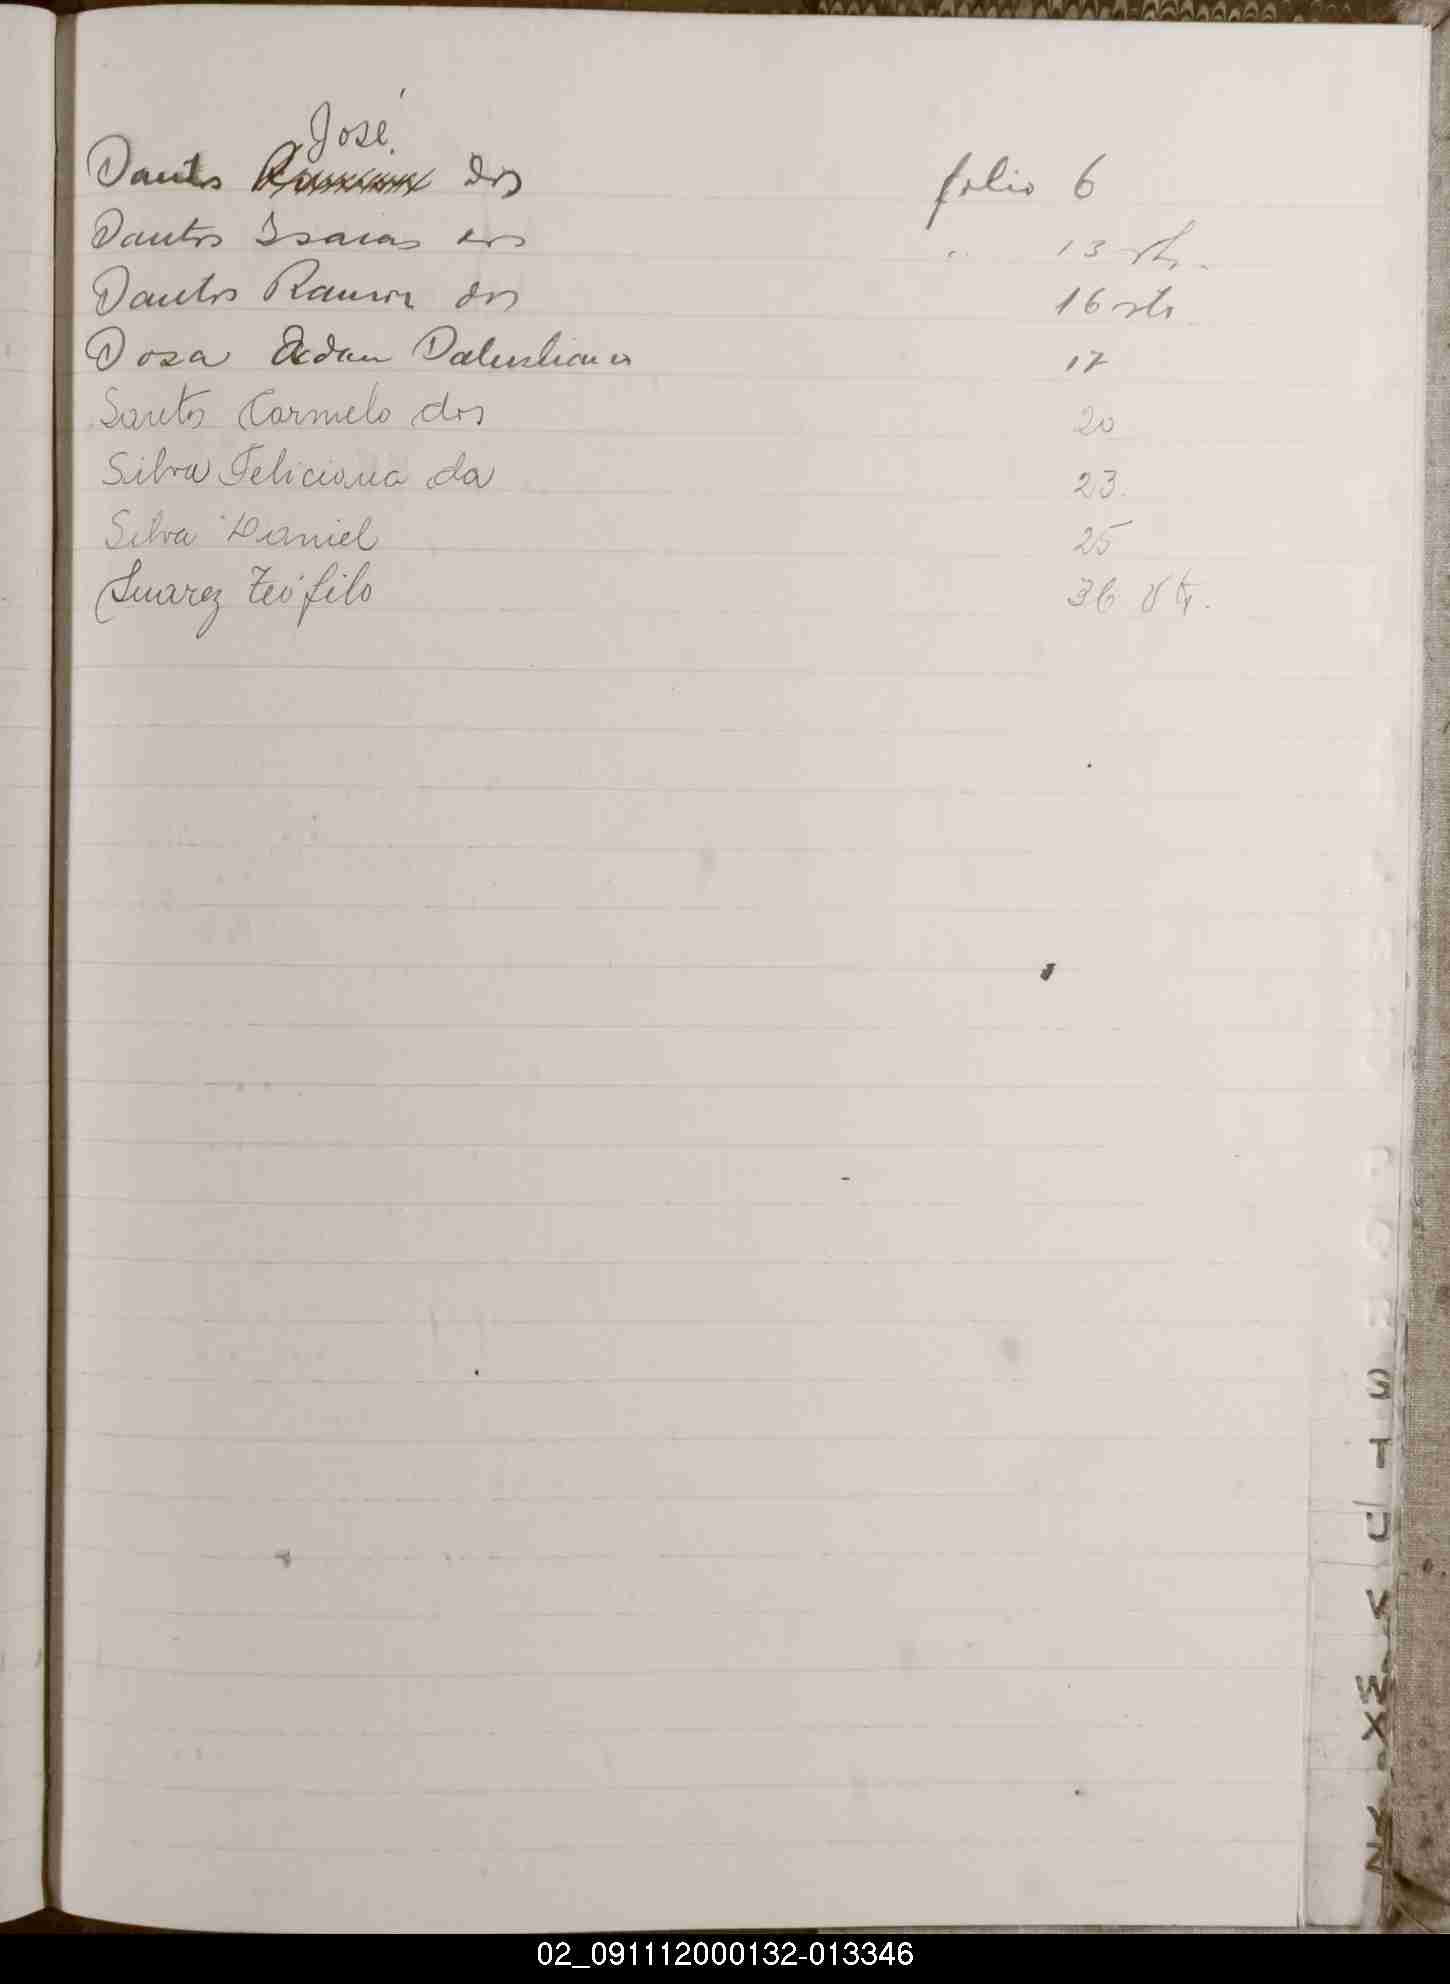 José
Santos dos folio 6
Santos Isaias dos " 13 vta.
Santos Ramon dos 16 vta
Sosa Adan Salustiano 17
Santos Carmelo dos 20
Silva Feliciana da 23.
Silva Daniel 25
Suarez Teófilo 36 Vta.
S
T
U
V
W
X
Y
Z
02_091112000132-013346